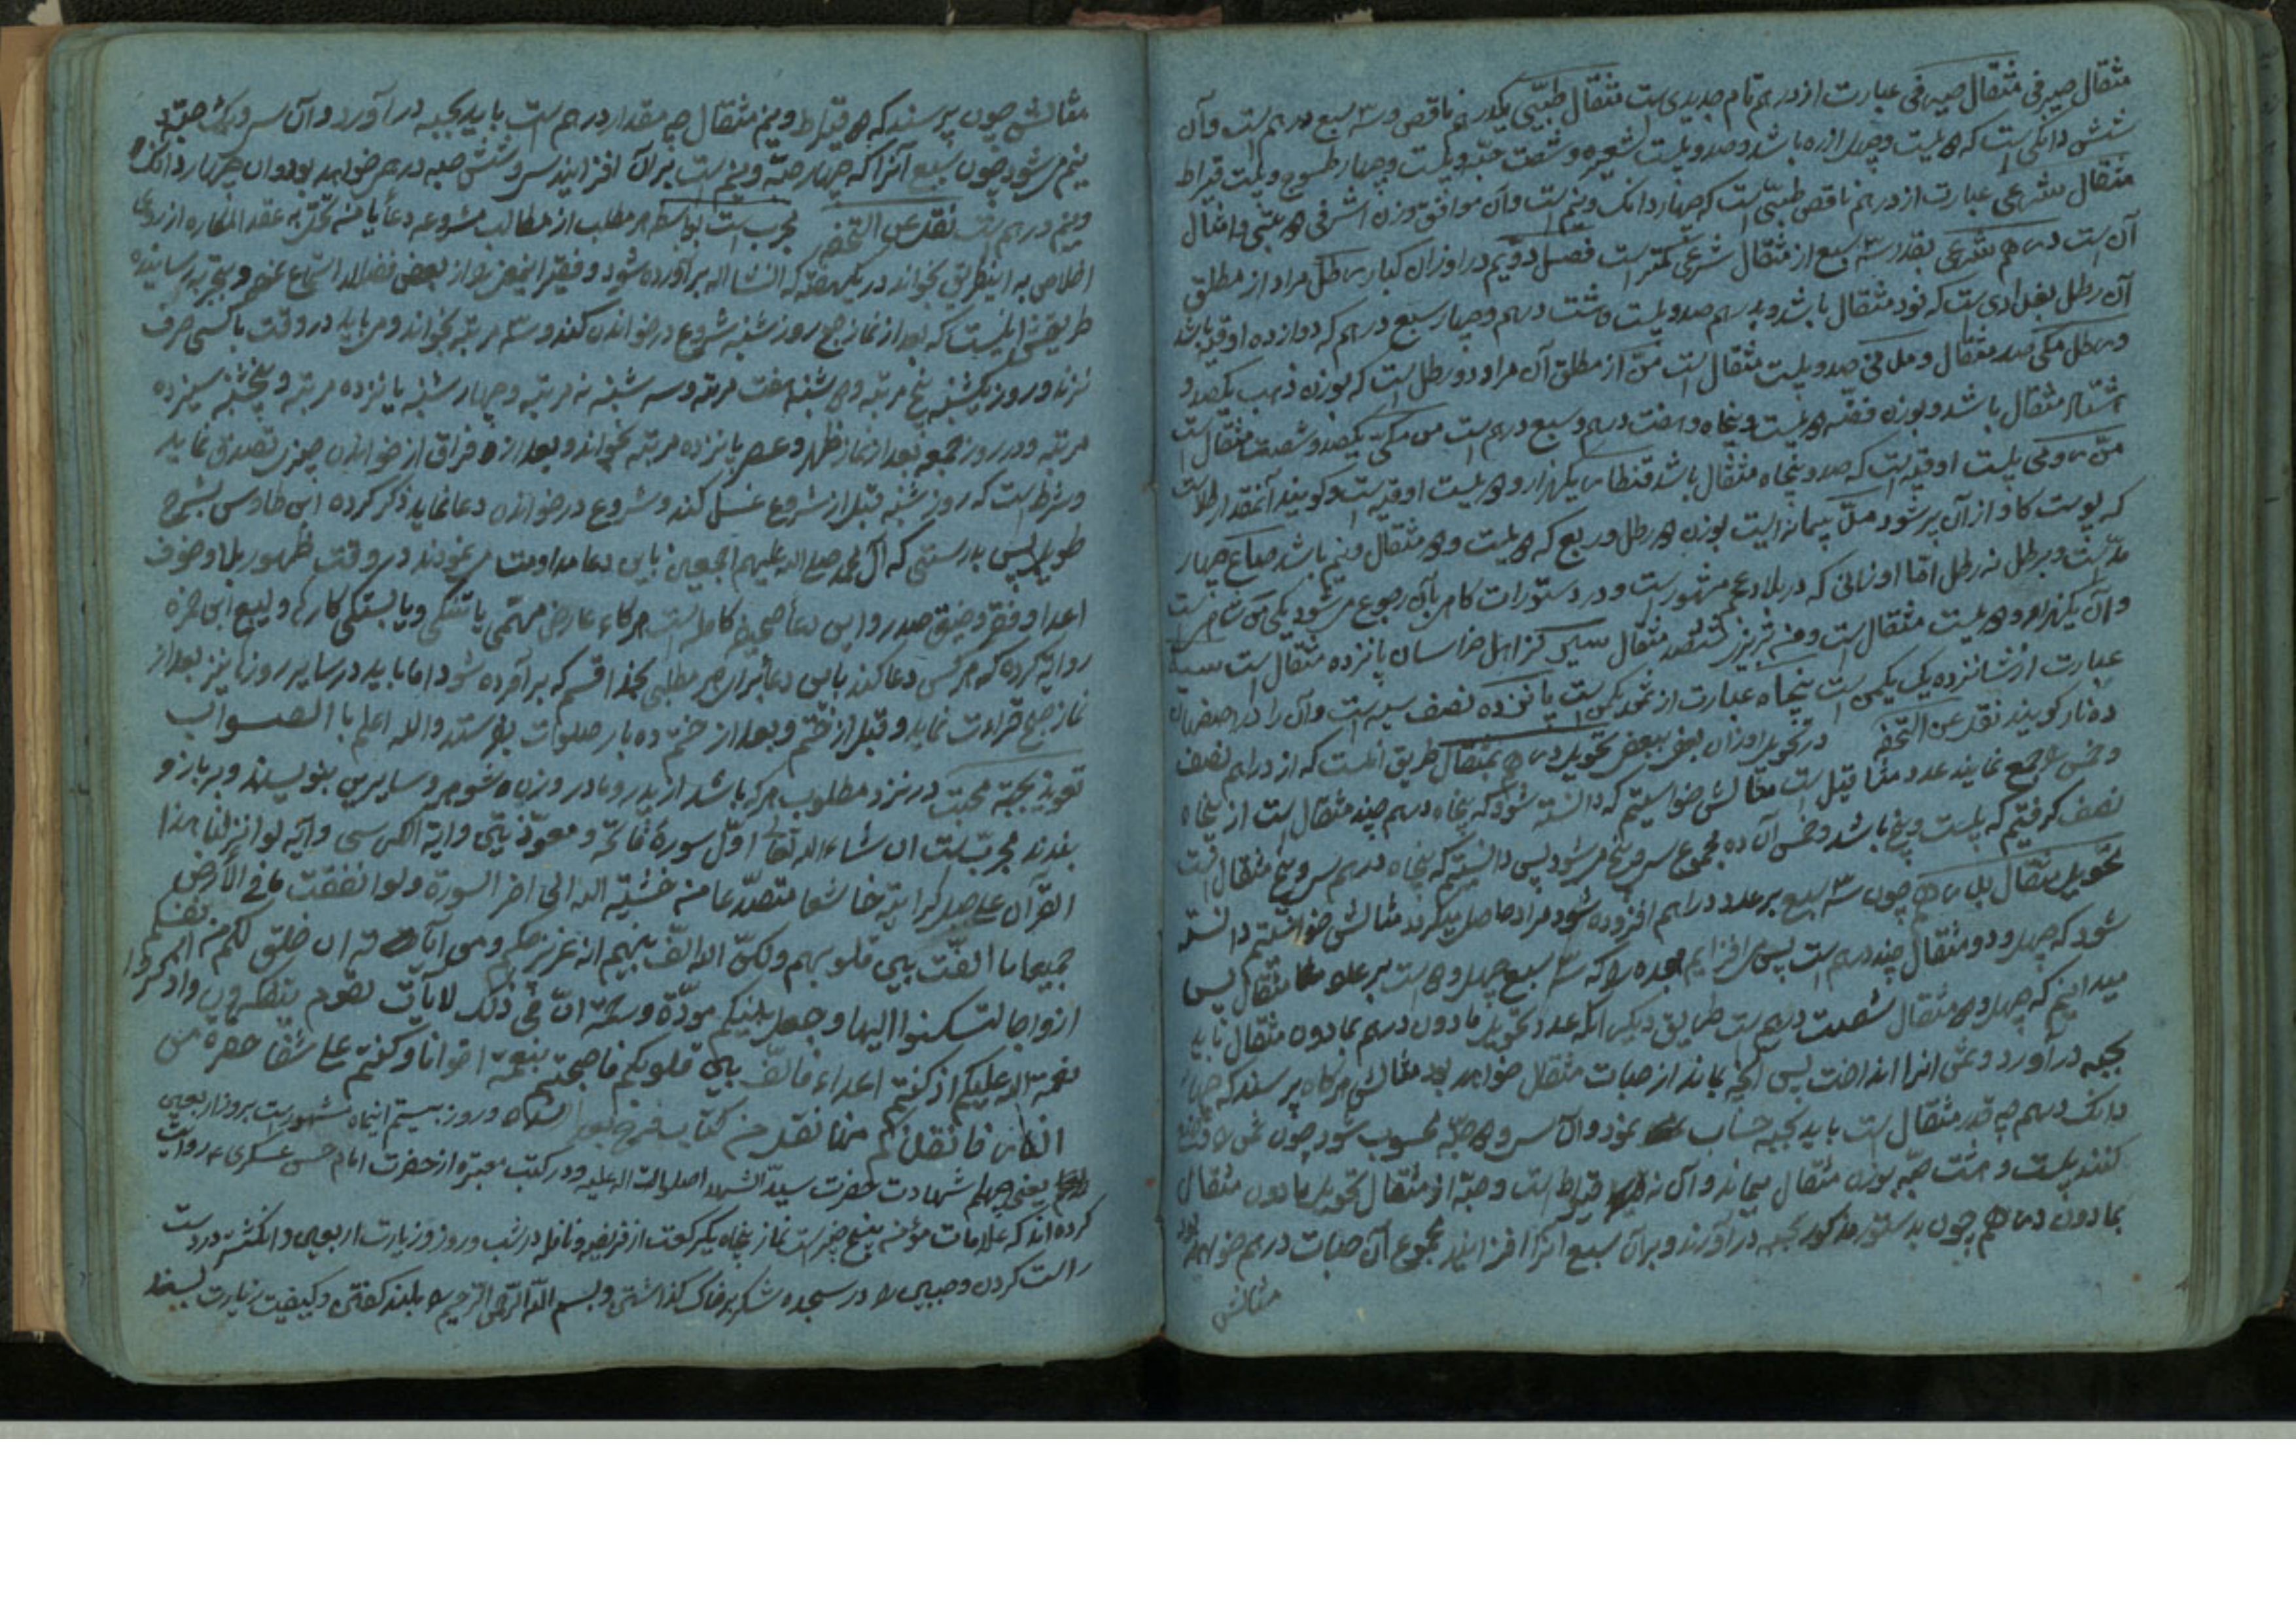 مثقال صیرفی مثقال صیرفی عبارت از درهم تام جدیدی است مثقال طبّی یکدرهم ناقص و سه سبع درهم است و آن
شش دانکی است که دویست و چهل ارزه باشد و صد و بیست شعیره و شصت حبّه و بیست و چهار طسوج و بیست قیراط
مثقال شرعی عبارت از درهم ناقص طبّی است که چهار دانک و نیم است و آن موافق وزن اشرفی دو بتی و امثال
آن است درهم شرعی بقدر سه سبع از مثقال شرعی کمتر است فصل دویم در اوزان کبار رطل مراد از مطلق
آن رطل بغدادی است که نود مثقال باشد و بدرهم صد و بیست و هشت درهم و چهار سبع درهم که دوازده اوقیه باشد
و رطل مکی صد مثقال و مدنی صد و بیست مثقال است منّ از مطلق آن مراد دو رطل است که بوزن ذهب یکصد و
هشتاد مثقال باشد و بوزن فضّه دویست و پنجاه و هفت درهم و سبع درهم است من مکّی یکصد و شصت مثقال است
منّ رومی بیست اوقیه است که صد و پنجاه مثقال باشد قنطار یکهزار و دویست اوقیه است و کویند آنمقدار طلاست
که پوست کاو از آن پر شود مدّ پیمانه ایست بوزن دو رطل و ربع که دویست و دو مثقال و نیم باشد صاع چهار
مدّ است و برطل نه رطل امّا اوزانی که در بلاد عجم مشهور است و در دستورات کامل بآن رجوع میشود یکی من شاهی است
و آن یکهزار و دویست مثقال است و من تبریز ششصد مثقال سیر کز اهل خراسان پانزده مثقال است سیه
عبارت از شانزده یک یکمن است پنجاه عبارت از ثمن یکمن است پانزده نصف سیه است و آن را در اصفهان
ده نار کویند نقل عن التحفه در تحویل اوزان بعضی ببعض تحویل درهم بمثقال طریق آنست که از دراهم نصف
و خمس را جمع نمایند عدد مثاقیل است مثالش خواستیم که دانسته شود که پنجاه درهم چند مثقال است از پنجاه
نصف کرفتیم که بیست و پنج باشد و خمس آن ده مجموع سی و پنج میشود پس دانستیم که پنجاه درهم سی و پنج مثقال است
تحویل مثقال بدرهم چون سه سبع بر عدد دراهم افزوده شود مراد حاصل میکردد مثالش خواستیم دانسته
شود که چهل و دو مثقال چند درهم است پس می افزاییم هجده را که سه سبع چهل و دو است بر عدد مثقال پس
میدانیم که چهل و دو مثقال شصت درهم است طریق دیکر آنکه عدد تحویل مادون درهم بمادون مثقال باید
بحبه درآورد و ثمن آنرا انداخت پس آنچه بماند از حبات مثقال خواهد بود مثالش هرکاه پرسند که چهار
دانک درهم چه قدر مثقال است باید بحبه حساب نمود و آن سی و دو حبّه محسوب شود چون ثمن را وضع
کنند بیست و هشت حبّه بوزن مثقال میماند و آن نه قیراط است و حبّه از مثقال تحویل مادون مثقال
بمادون درهم چون بدستور مذکور بحبه درآورند و بر آن سبع آنرا افزایند مجموع آن حبات درهم خواهد بود
مثالش
مثالش چون پرسند که دو قیراط و نیم مثقال چه مقدار درهم است باید بحبه درآورد و آن سی و یک حبّه و
نیم میشود چون سبع آنرا که چهار حبّه و نیم است بر آن افزایند سی و شش حبه درهم خواهد بود و آن چهار دانک و
نیم درهم است نقل عن التحفه مجرب است بواسطه هر مطلب از مطالب مشروعه دعاء یا من تحل به عقد المکاره از روی
اخلاص به اینطریق بخواند در یکهفته که انشااله برآورده شود و فقیر اینعمل را از بعضی فضلاء استماع نموده و بتجربه رسانیده
طریقش اینست که بعد از نماز صبح روز شنبه شروع در خواندن کند و سه مرتبه بخواند و می باید در وقت با کسی حرف
نزند و روز یکشنبه پنج مرتبه و دوشنبه هفت مرتبه و سه شنبه نه مرتبه و چهار شنبه یازده مرتبه و پنجشنبه سیزده
مرتبه و در روز جمعه بعد از نماز ظهر و عصر پانزده مرتبه بخواند و بعد از فراق از خواندن چیزی تصدق نماید
و شرط است که روز شنبه قبل از شروع غسل کند و شروع در خواندن دعا نماید ذکر کرده ابن طاوس بشرح
طویل پس بدرستی که آل محمد صلی اله علیهم اجمعین باین دعا مداومت می نمودند در وقت ظهور بلا و خوف
اعدا و فقر و ضیق صدر و این دعا صحیفه کامله است هرکاه عارض مهمّی یا تنکی و یا بستکی کاری و لیسع ابن حمزه
روایه کرده که هرکس دعا کند باین دعا برای هر مطلبی بخدا قسم که برآورده شود اما باید در سایر روزها نیز بعد از
نماز صبح قراءت نماید و قبل از ختم و بعد از ختم ده بار صلوات بفرستد والله اعلم با الصواب
تعویذ بجهة محبت در نزد مطلوب هرکه باشد از پدر و مادر و زن و شوهر و سایرین بنویسند و بر بازو
بندند مجرّب است ان شاء الله تعالی اوّل سورهٔ فاتحه و معوّذتین و ایة الکرسی و آیه لو انزلنا هذا
القرآن علی جبل لرایته خاشعا متصدّعا من خشیة الله الی اخر السورة و لو انفقت ما فی الارض
جمیعا ما الفت بین قلوبهم ولکنّ الله الّف بینهم انه عزیز حکیم و من آیاته ان خلق لکم من انفسکم
ازواجا لتسکنوا الیها و جعل بینکم مودّة و رحمة انّ فی ذلک لایات لقوم یتفکرون واذکروا
نعمة اله علیکم اذ کنتم اعداء فالّف بین قلوبکم فاصبحتم بنعمته اخوانا و کنتم علی شفا حفرة من
النار فانقذکم منها نقل من کتاب و روز بیستم اینماه مشهور است بروز اربعین
یعنی چهلم شهادت حضرت سیدّ الشهدا صلوات اله علیه و در کتب معتبره از حضرت امام حسن عسکری ع روایت
کرده اند که علامات مؤمن پنج چیز است نماز پنجاه یک رکعت از فریضه و نافله در شب و روز و زیارت اربعین و انکشتر در دست
راست کردن و جبین را در سجده شکر بر خاک کذاشتن و بسم اللّه الرّحمن الرّحیم را بلند کفتن و کیفیت زیارت بسند